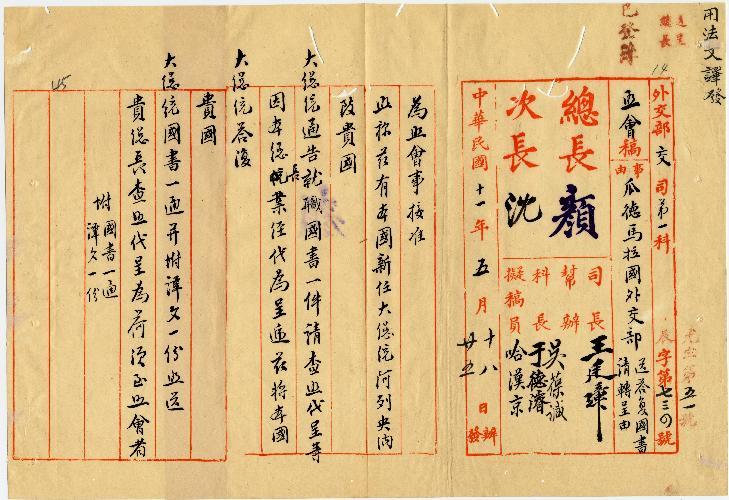 用法文譯發
送呈
總長
已發
外交部 交 司第一科
照會稿
事由
瓜德馬拉國外交部
送答复國書
請轉呈由
辰字第七三〇號
第五一號
總長 顏
次長 沈
司長 王廷璋
幫辦 吳葆諴
科長 于德濬
擬稿員 哈漢京
中華民國十一年五月十八日辦
廿五 發
為照會事接准
照稱茲有本國新任大總統阿列央納
致貴國
大總統通告就職國書一件請查照代呈等
因本總長業經代為呈遞茲將本國
大總統答復
貴國
大總統國書一通并附譯文一份照送
貴總長查照代呈為荷須至照會者
附 國書一通
譯文一份
45